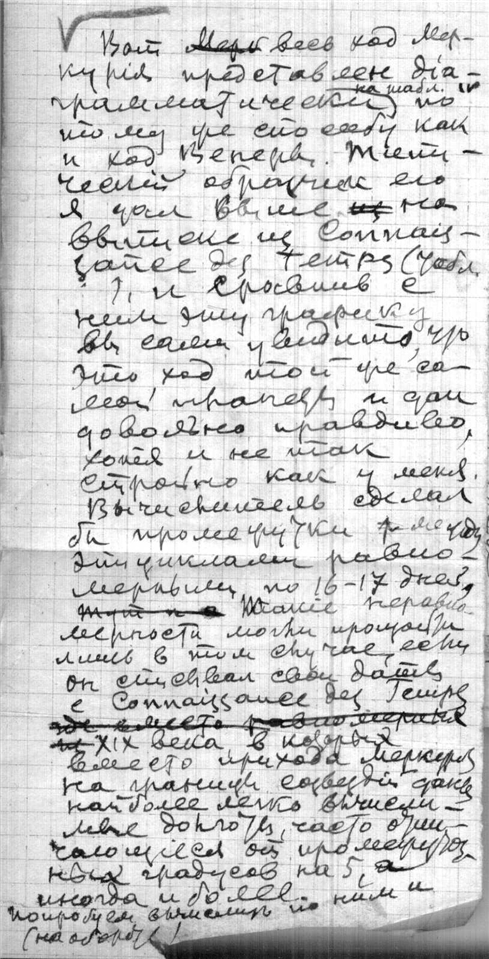 Вот весь ход Мер-
курія представлен діа-
на табл. IV
грамматически по
тому же способу как
и ход Венеры. Типи-
ческій образчик его
я дал выше на
выписке из Connais-
sance des Temps (табл.
), и сравнив с
ним эту графику
вы сами увидите, что
это ход той же са-
мой планеты и дан
довольно правдиво,
хотя и не так
стройно как у меня.
Вычислитель сделал
бы промежутки между
этими циклами равно-
мерными по 16-17 дней,
Такіе неравно-
мерности могли произойти
лишь в том случае, если
он списывал свои даты
с Connaissance des Temps
XIX века в которых
вместо прихода Меркурія
на границы созвездій даны
наиболее легко вычисли-
мые долготы, часто отли-
чающіеся от промежуточ-
ных градусов на 5,
иногда и более.
попробуем вычислить по ним и
(на обороте)!